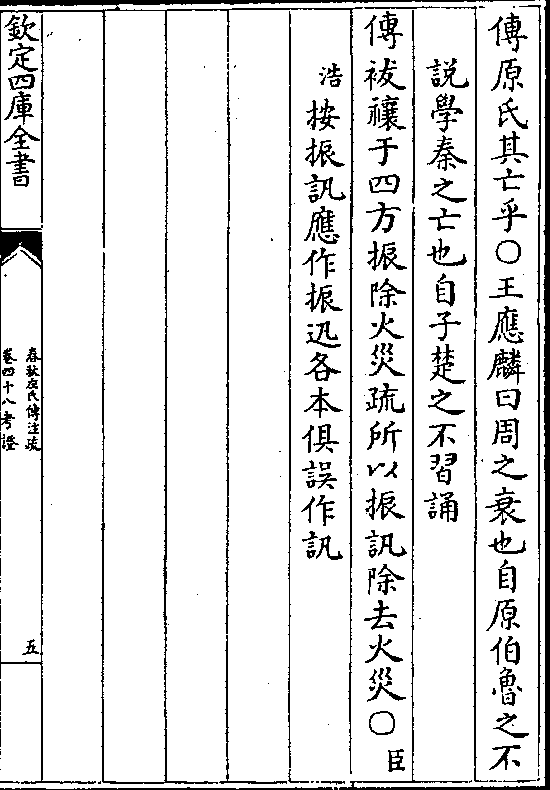 傳原氏其亡乎○王應麟曰周之衰也自原伯魯之不
説學秦之亡也自子楚之不習誦
傳祓禳于四方振除火災疏所以振訊除去火災○臣
浩按振訊應作振迅各本俱誤作訊
欽定四庫全書
春秋左氏傳注疏
卷四十八考證
五